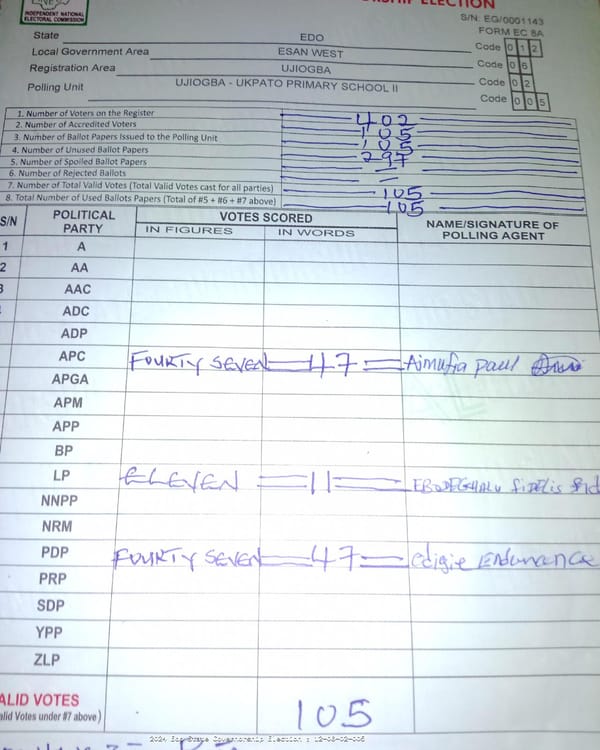 INDEPENDENT NATIONAL
ELECTORAL COMMISSION
ELECTION
S/N: EG/0001143
FORM EC 8A
State EDO Code 0 1 2
Local Government Area ESAN WEST Code 0 6
Registration Area UJIOGBA Code 0 2
Polling Unit UJIOGBA - UKPATO PRIMARY SCHOOL II Code 0 0 5
1. Number of Voters on the Register 402
2. Number of Accredited Voters 105
3. Number of Ballot Papers Issued to the Polling Unit 105
4. Number of Unused Ballot Papers 297
5. Number of Spoiled Ballot Papers
6. Number of Rejected Ballots
7. Number of Total Valid Votes (Total Valid Votes cast for all parties) 105
8. Total Number of Used Ballots Papers (Total of #5 + #6 + #7 above) 105
S/N POLITICAL PARTY VOTES SCORED NAME/SIGNATURE OF POLLING AGENT
IN FIGURES IN WORDS
1 A
2 AA
3 AAC
ADC
ADP
APC FOURTY SEVEN 47 Aimufia paul
APGA
APM
APP
BP
LP ELEVEN 11 fidelis
NNPP
NRM
PDP FOURTY SEVEN 47 edigie Endurance
PRP
SDP
YPP
ZLP
ALID VOTES
alid Votes under #7 above) 105
2024 Edo State Governorship Election : 12-06-02-005